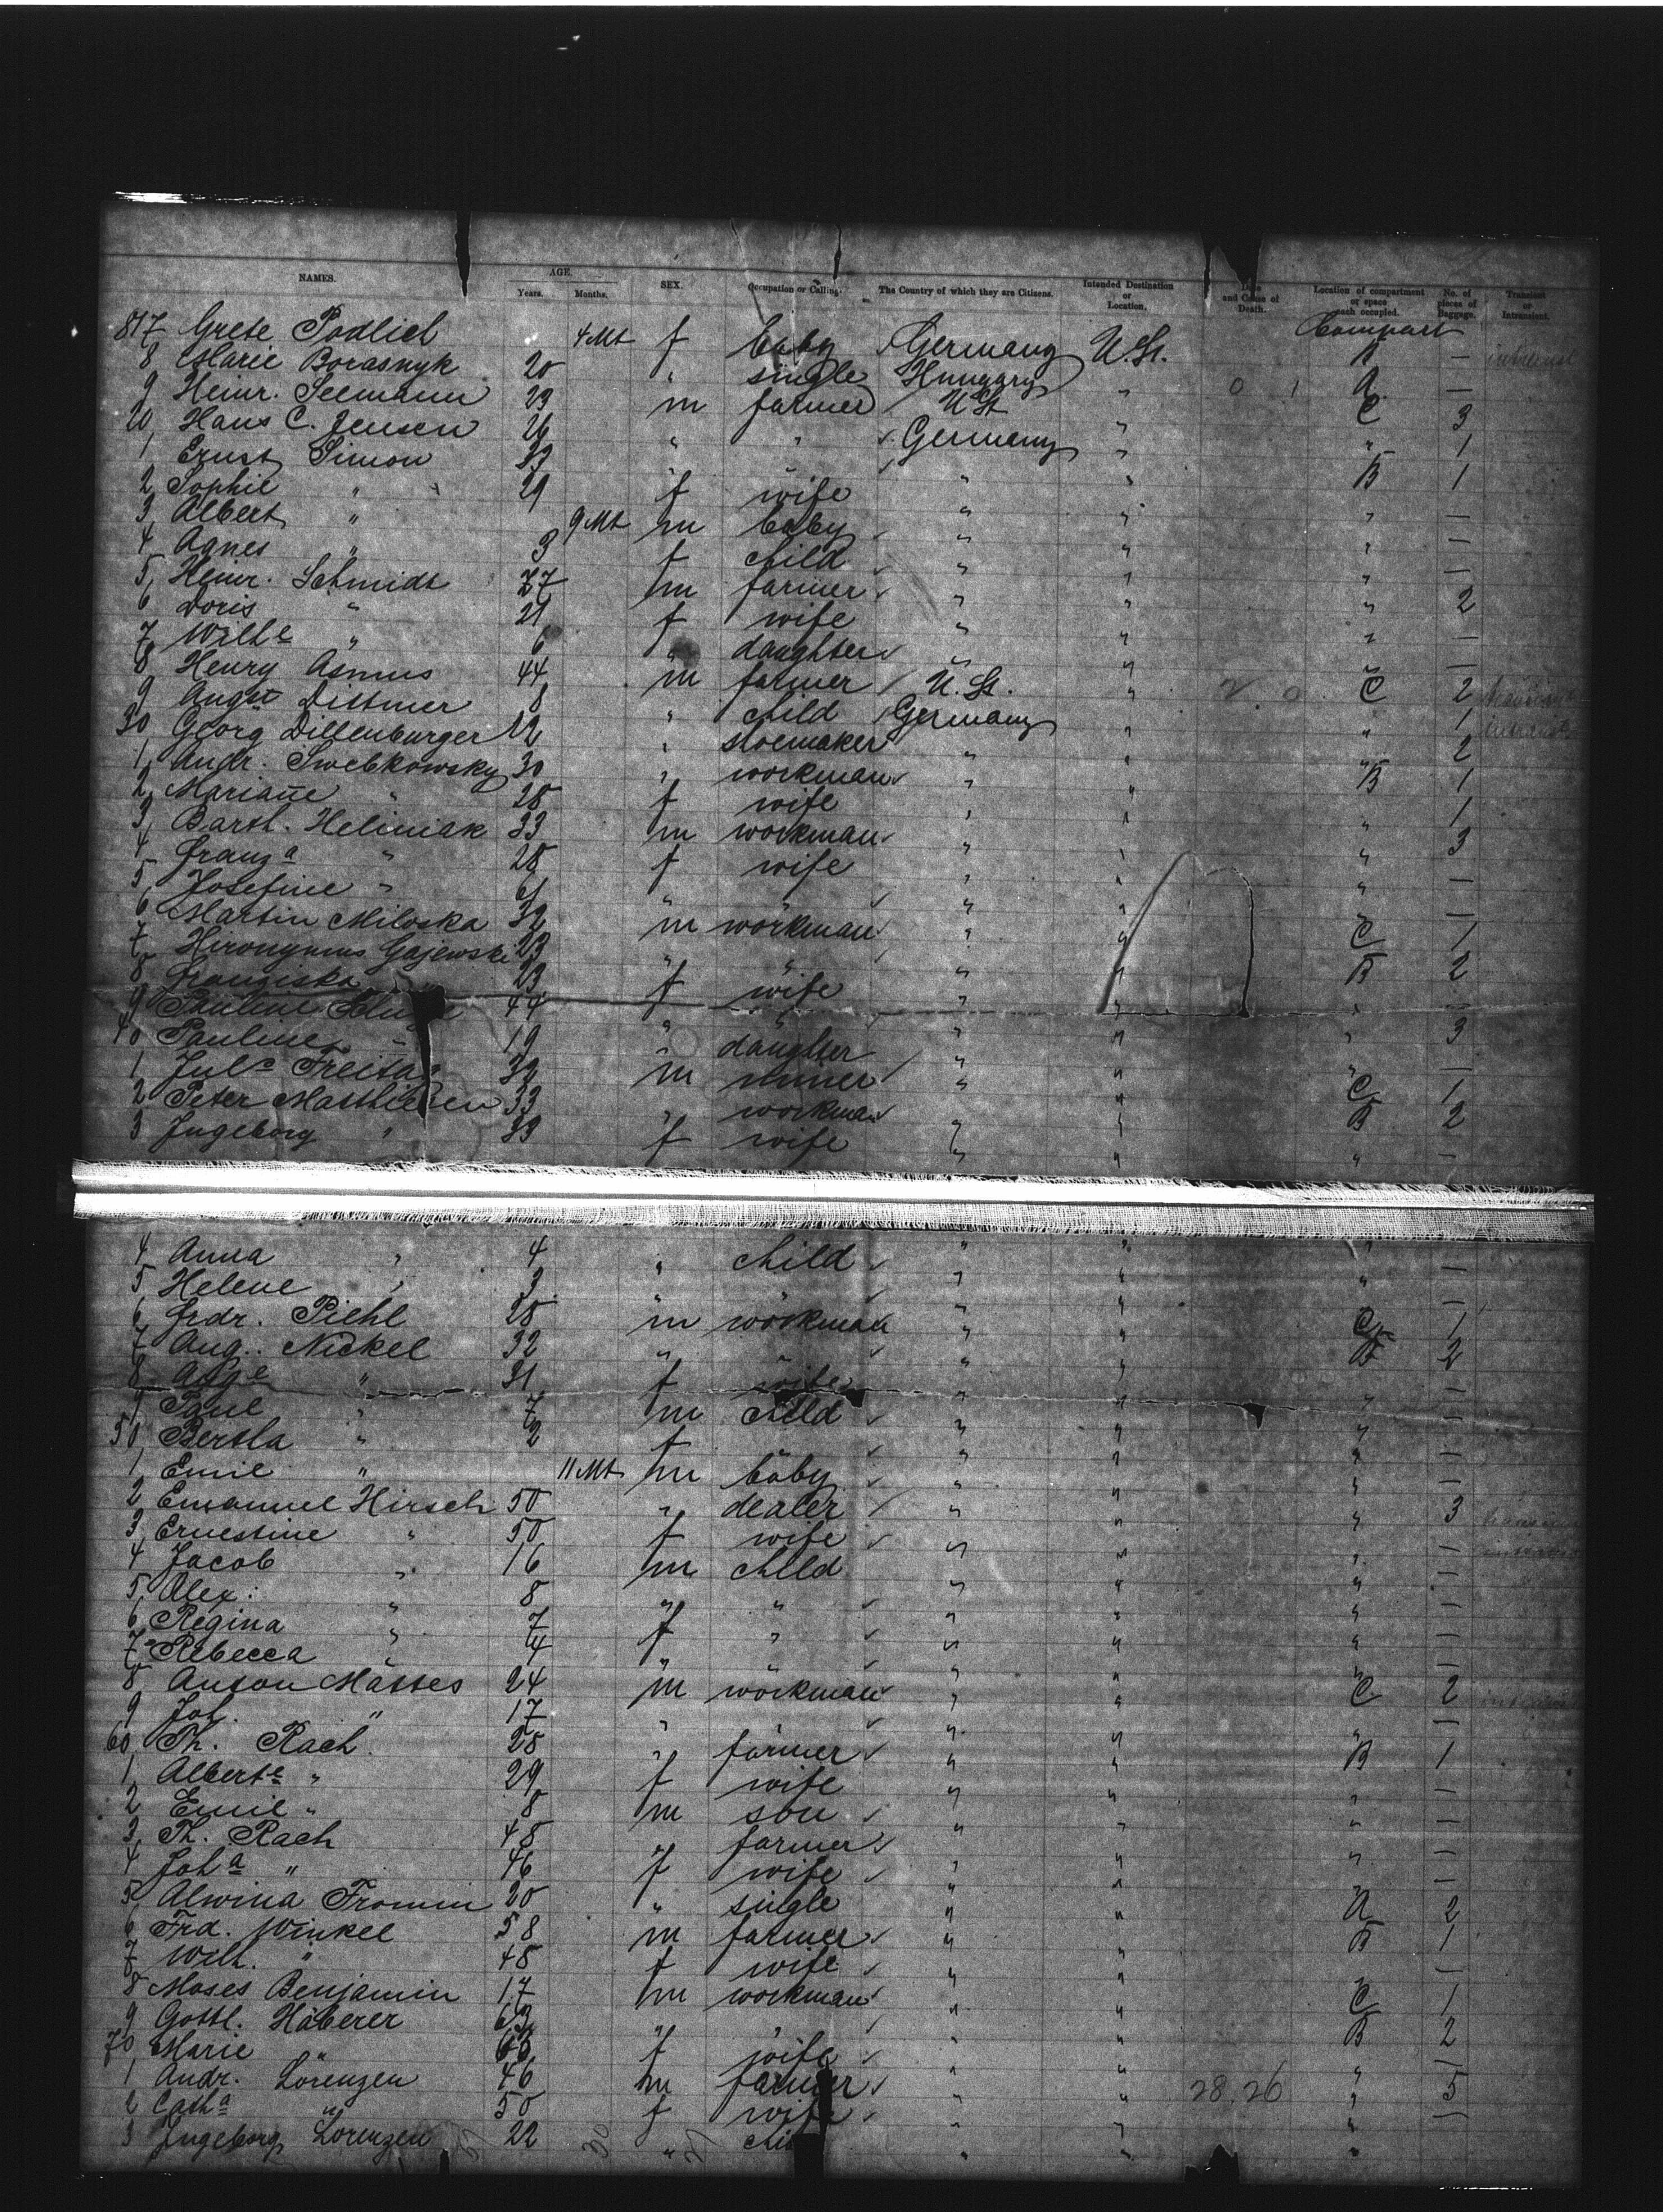 NAMES. AGE. SEX. Occupation or Calling. The Country of which they are Citizens. Intended Destination or Location. Date and Cause of Death. Location of compartment or space each occupied. No. of pieces of Baggage. Transient or Intransient.
Years. Months.
Compart
817 Grete Podlich 4 Mt f baby Germany U.St. B —
8 Marie Borasnyk 20 " single Hungary " A —
9 Heinr. Seemann 23 m farmer U St " C 3
20 Hans C. Jensen 26 " " Germany " " 1
1 Ernst Simon 33 " " B 1
2 Sophie " 29 f wife " " " —
3 Albert " 9 Mt m baby " " " —
4 Agnes " 3 f child " " " —
5 Heinr. Schmidt 27 m farmer " " " 2
6 Doris " 21 f wife " " " —
7 Wilhe " 6 " daughter " " " —
8 Henry Asmus 44 m farmer U. St. " C 2
9 Augte Dittmer 8 " child Germany " " 1
30 Georg Dillenburger 12 " shoemaker " " " 2
1 Andr. Swebkowsky 30 " workman " " B 1
2 Mariane " 28 f wife " " " 1
3 Barth. Heliniak 33 m workman " " " 3
4 Franza " 28 f wife " " " —
5 Josefine " " " " " —
6 Martin Miloska 32 m workman " " C 1
7 Hironymus Gajewski 23 " " " " B 2
8 Franziska 23 f wife " " " —
9 Pauline 44 " " " " " 3
40 Pauline " 19 " daughter " " " —
1 Julc Freitag 32 m " " C 1
2 Peter Matthießen 33 " workman " " B 2
3 Ingeborg " 33 f wife " " " —
4 Anna " 4 " child " " " —
5 Helene " 3 " " " " " —
6 Frdr. Piehl 28 m workman " " C 1
7 Aug. Nickel 32 " " " " B 2
8 " 31 f wife " " " —
9 Paul " 7 m child " " " —
50 Bertha " 2 f " " " " —
1 Emil " 11 Mt m baby " " " —
2 Emanuel Hirsch 50 " dealer " " " 3
3 Ernestine " 50 f wife " " " —
4 Jacob " 16 m child " " " —
5 Alex: " 8 " " " " " —
6 Regina " 7 f " " " " —
7 Rebecca " 4 " " " " " —
8 Anton Masses 24 m workman " " C 2
9 Joh. " 17 " " " " " —
60 Th. Rach 28 " farmer " " B 1
1 Alberte " 29 f wife " " " —
2 Emil " 8 m son " " " —
3 Th. Rach 48 " farmer " " " —
4 Joha " 46 f wife " " " —
5 Alwina Fromm 20 " single " " A 2
6 Frd. Winkel 58 m farmer " " B 1
7 Wilh. " 48 f wife " " " —
8 Moses Benjamin 17 m workman " " C 1
9 Gottl. Häberer 63 " " " " B 2
70 Marie " 63 f wife " " " —
1 Andr. Lorenzen 46 m farmer " " 28.26 " 5
2 Catha " 50 f wife " " " —
3 Ingeborg Lorenzen 22 " " " "